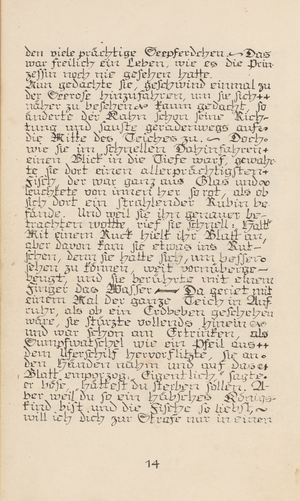 den viele prächtige Seepferdchen. Das
war freilich ein Leben, wie es die Prin-
zessin noch nie gesehen hatte.
Nun gedachte sie, geschwind einmal zu
der Seerose hinzufahren, um sie sich
näher zu besehen. Kaum gedacht, so
änderte der Kahn schon seine Rich-
tung und sauste geradenwegs auf
die Mitte des Teiches zu. Doch
wie sie im schnellen Dahinfahren
einen Blick in die Tiefe warf, gewahr-
te sie dort einen allerprächtigsten
Fisch, der war ganz aus Glas und
leuchtete von innen her so rot, als ob
sich dort ein strahlender Rubin be-
fände. Und weil sie ihn genauer be-
trachten wollte, rief sie schnell: Halt!
Mit einem Ruck hielt ihr Blatt an,
aber davon kam sie etwas ins Rut-
schen, denn sie hatte sich, um besser
sehen zu können, weit vornüberge-
beugt, und sie berührte mit einem
Finger das Wasser. Da geriet mit
einem Mal der ganze Teich in Auf-
ruhr, als ob ein Erdbeben geschehen
wäre, sie stürzte vollends hinein
und war schon am Ertrinken, als
Sumpfwatschel wie ein Pfeil aus
dem Uferschilf hervorflitzte, sie an
den Händen nahm und auf das
Blatt emporzog. Eigentlich, sagte
er böse, hättest du sterben sollen. A-
ber weil du so ein hübsches Königs-
kind bist und die Fische so liebst,
will ich dich zur Strafe nur in einen
14